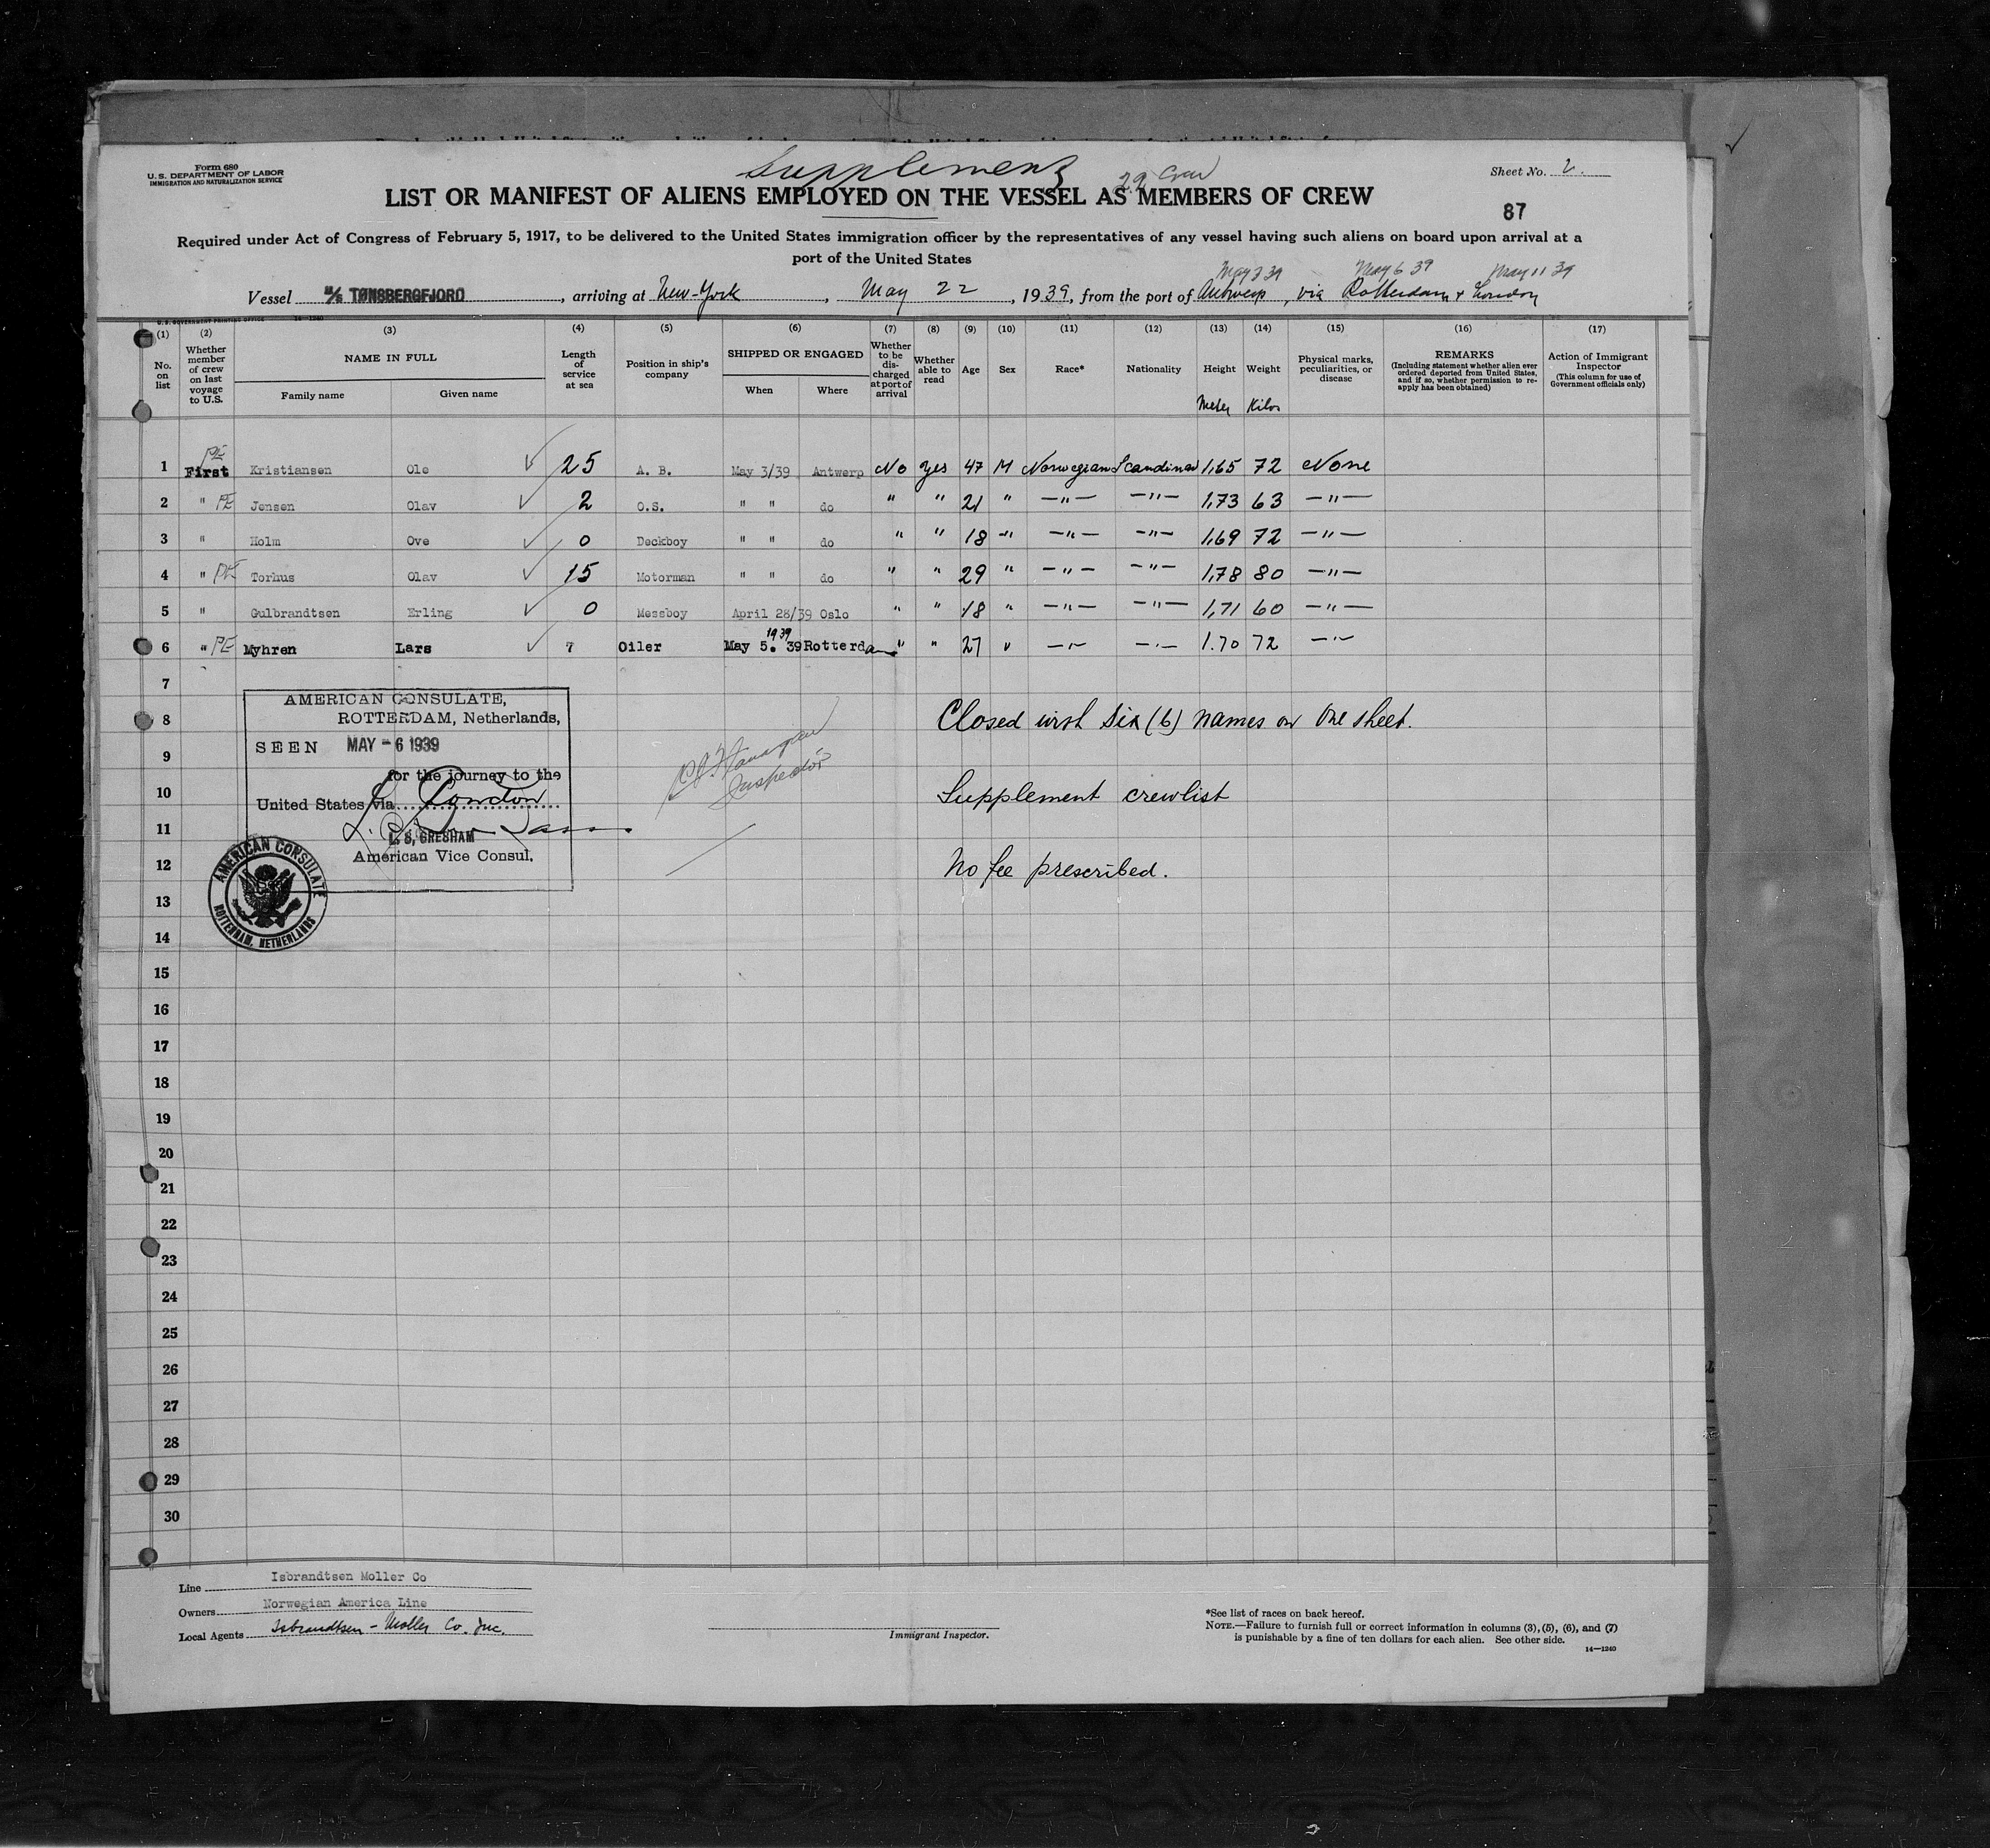 Form 680
U. S. DEPARTMENT OF LABOR
IMMIGRATION AND NATURALIZATION SERVICE
Supplement
22 Crew
Sheet No. 2.
LIST OR MANIFEST OF ALIENS EMPLOYED ON THE VESSEL AS MEMBERS OF CREW
87
Required under Act of Congress of February 5, 1917, to be delivered to the United States immigration officer by the representatives of any vessel having such aliens on board upon arrival at a
port of the United States
May 3 39 May 6 39 May 11 39
Vessel M/S TØNSBERGFJORD, arriving at New-York, May 22, 1939, from the port of Antwerp, via Rotterdam + London
U. S. GOVERNMENT PRINTING OFFICE 14—1240
(1) (2) (3) (4) (5) (6) (7) (8) (9) (10) (11) (12) (13) (14) (15) (16) (17)
No. on list
Whether member of crew on last voyage to U.S.
NAME IN FULL
Family name
Given name
Length of service at sea
Position in ship's company
SHIPPED OR ENGAGED
When
Where
Whether to be discharged at port of arrival
Whether able to read
Age
Sex
Race*
Nationality
Height
Meter
Weight
Kilos
Physical marks, peculiarities, or disease
REMARKS
(Including statement whether alien ever ordered deported from United States, and if so, whether permission to re-apply has been obtained)
Action of Immigrant Inspector
(This column for use of Government officials only)
1 PE First Kristiansen Ole ✓ 25 A. B. May 3/39 Antwerp No Yes 47 M Norwegian Scandinav 1,65 72 None
2 " PE Jensen Olav ✓ 2 O.S. " " do " " 21 " —"— —"— 1,73 63 —"—
3 " Holm Ove ✓ 0 Deckboy " " do " " 18 -" —"— —"— 1,69 72 —"—
4 " PE Torhus Olav ✓ 15 Motorman " " do " " 29 " —"— —"— 1,78 80 —"—
5 " Gulbrandtsen Erling ✓ 0 Messboy April 28/39 Oslo " " 18 " —"— —"— 1,71 60 —"—
6 " PE Myhren Lars ✓ 7 Oiler May 5. 1939 39 Rotterdam " " 27 " —"— —"— 1.70 72 —"—
7
AMERICAN CONSULATE,
ROTTERDAM, Netherlands,
8 Closed with Six (6) names on one sheet.
SEEN MAY - 6 1939
9
for the journey to the
Inspector
10 Supplement crewlist
United States via London
11
L. S. GRESHAM
American Vice Consul.
12 No fee prescribed.
AMERICAN CONSULATE
ROTTERDAM, NETHERLANDS
13
14
15
16
17
18
19
20
21
22
23
24
25
26
27
28
29
30
Line Isbrandtsen Moller Co
Owners Norwegian America Line
Local Agents Isbrandtsen - Moller Co. Inc.
Immigrant Inspector.
*See list of races on back hereof.
NOTE.—Failure to furnish full or correct information in columns (3), (5), (6), and (7)
is punishable by a fine of ten dollars for each alien. See other side.
14—1240